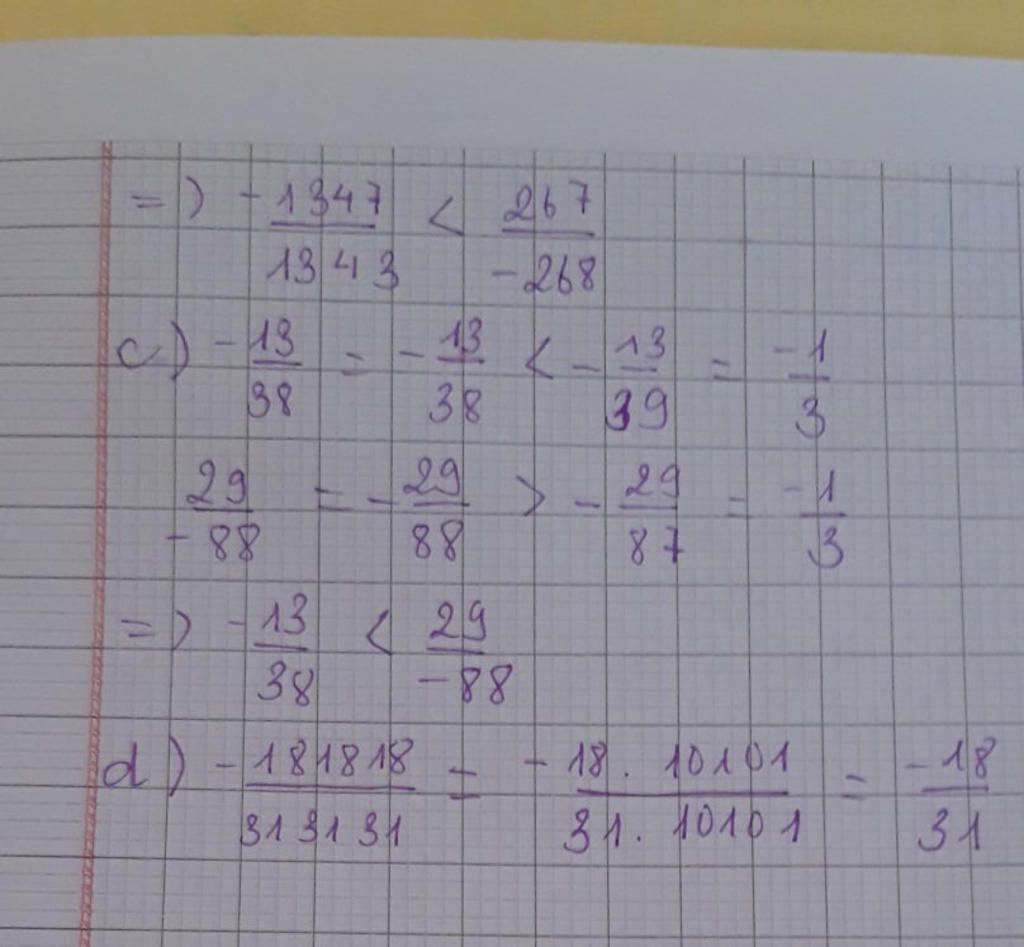 => -1347/1343 < 267/-268
c) -13/38 = -13/38 < -13/39 = -1/3
29/-88 = -29/88 > -29/87 = -1/3
=> -13/38 < 29/-88
d) -181818/313131 = -18.10101/31.10101 = -18/31